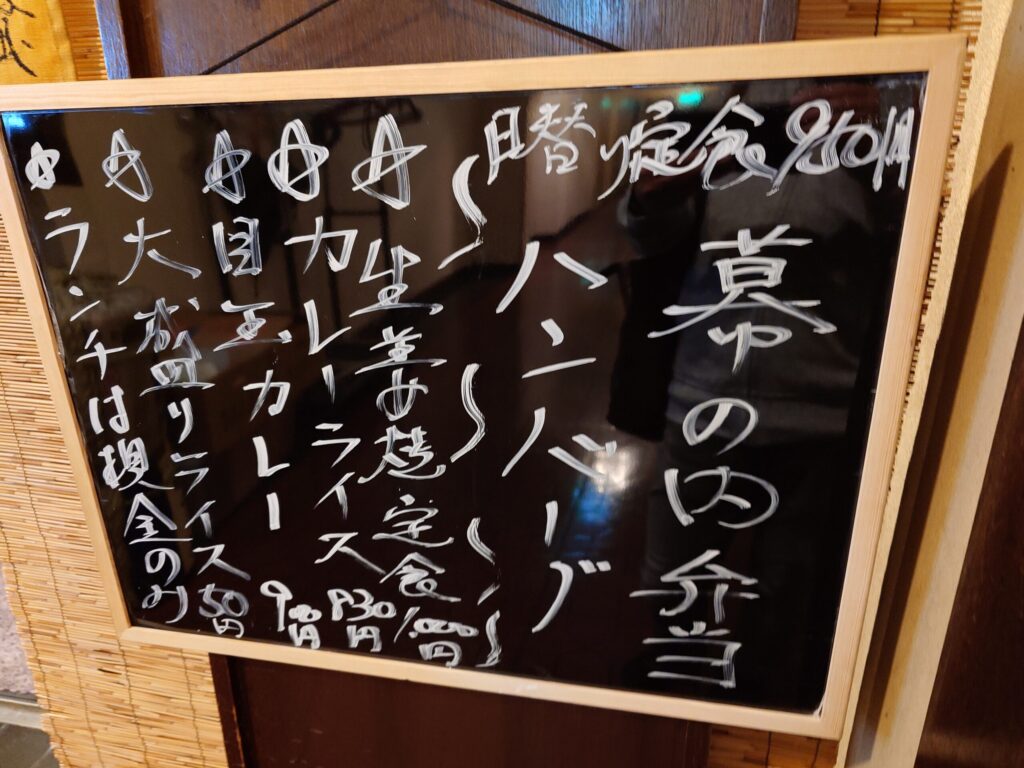 日替り定食 950円
幕の内弁当
ハンバーグ
生姜焼定食 1,000円
カレーライス 830円
目玉カレー 900円
大盛りライス 50円
ランチは現金のみ